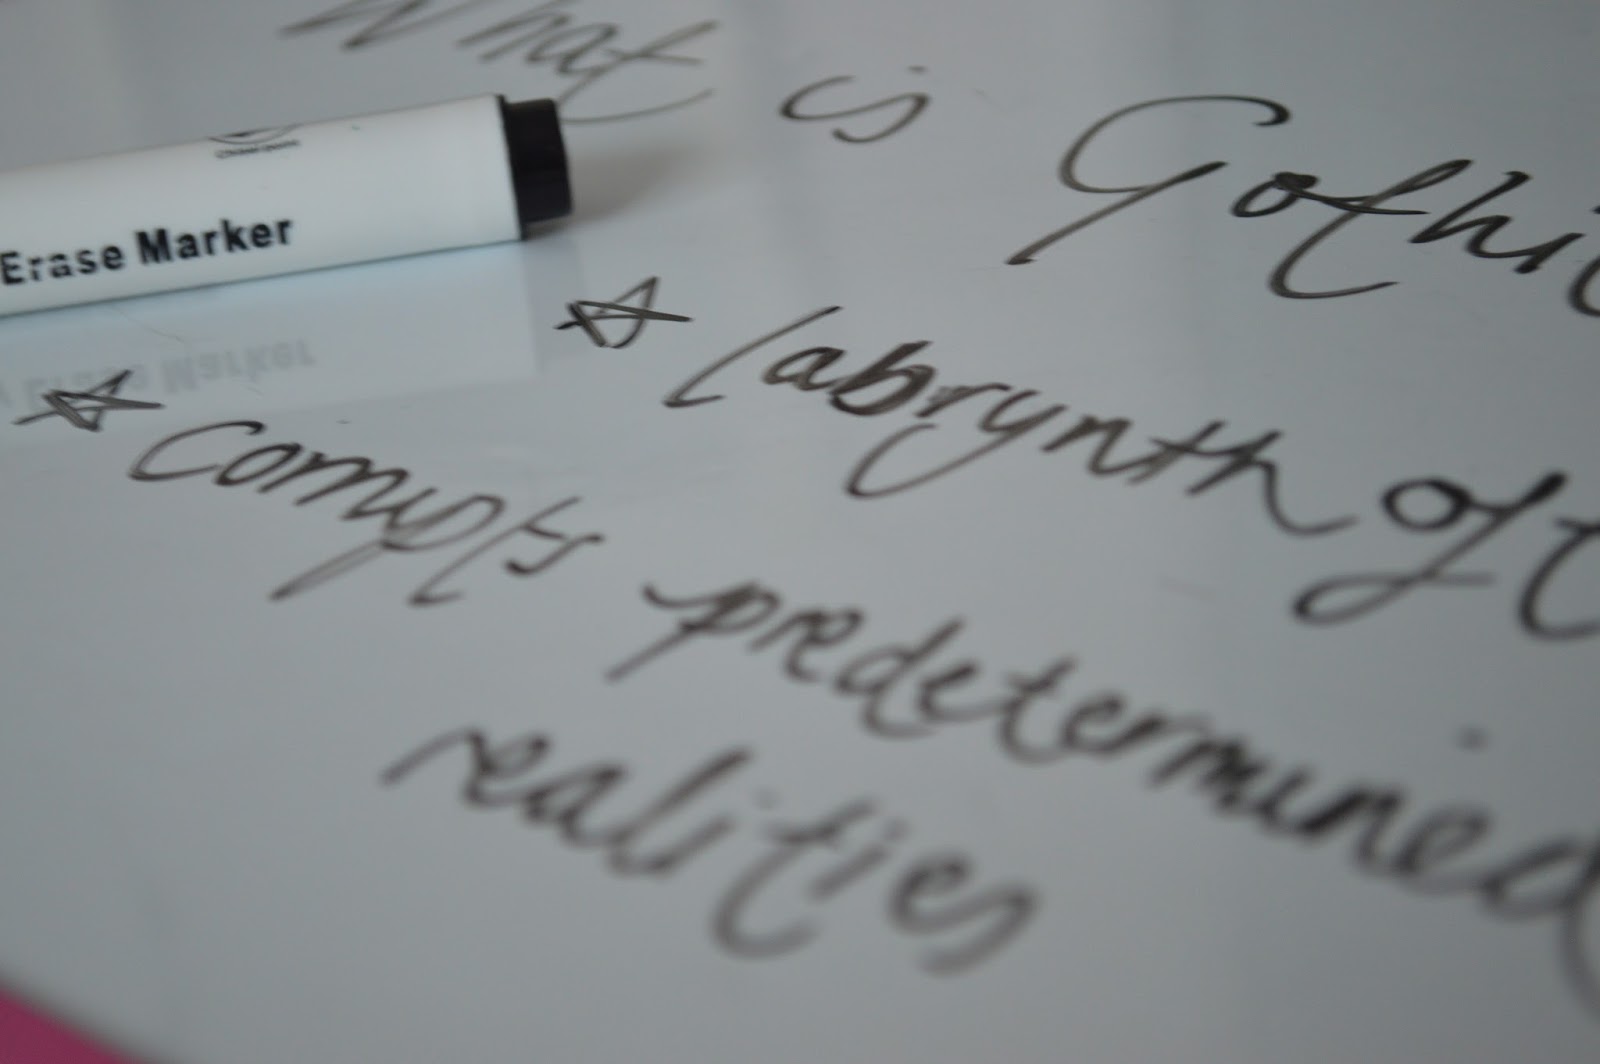 What is Gothic
Erase Marker
labrynth of
Corrupts predetermined
realities